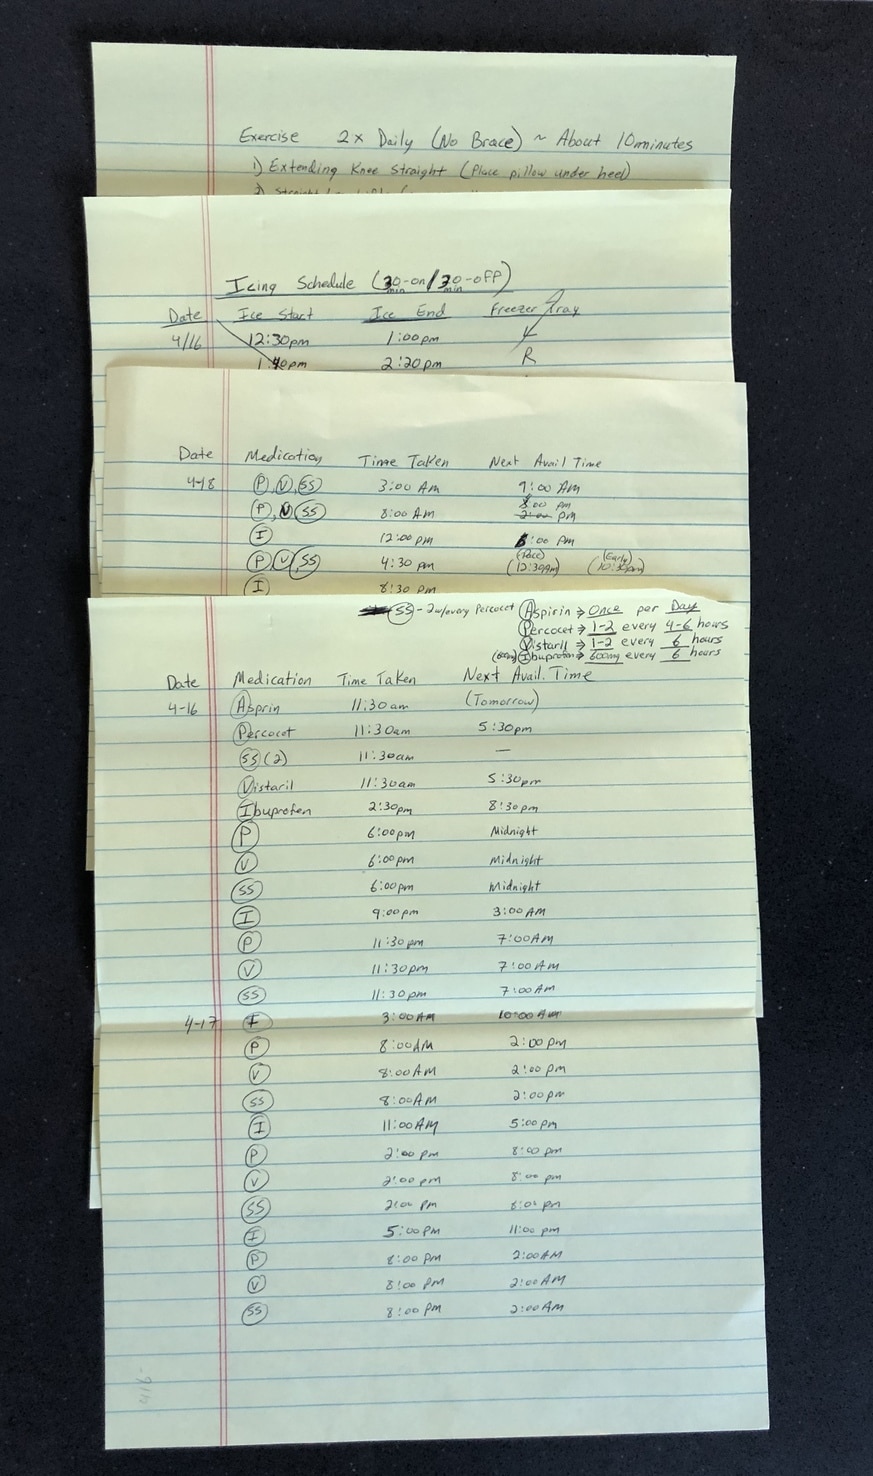 Exercise 2x Daily (No Brace) ~ About 10minutes
1) Extending Knee Straight (Place pillow under heel)
2) Straight
Icing Schedule (30-on/30-off)
min min
Date Ice Start Ice End Freezer Tray
4/16 12:30pm 1:00pm
1:40pm 2:20pm R
Date Medication Time Taken Next Avail Time
4-18 P, V, SS 3:00 AM 9:00 AM
8:00 pm
P, V SS 8:00 AM 2:00 pm
I 12:00 pm 6:00 AM
(Perc) (Early)
P, V, SS 4:30 PM (12:30AM) (10:30pm)
I 8:30 PM
SS - 2 w/every Percocet Aspirin → Once per Day
Percocet → 1-2 every 4-6 hours
Vistaril → 1-2 every 6 hours
(600mg) Ibuprofen → 600mg every 6 hours
Date Medication Time Taken Next Avail. Time
4-16 Asprin 11:30am (Tomorrow)
Percocet 11:30am 5:30pm
SS (2) 11:30am —
Vistaril 11:30am 5:30pm
Ibuprofen 2:30pm 8:30pm
P 6:00pm Midnight
V 6:00pm Midnight
SS 6:00pm Midnight
I 9:00pm 3:00AM
P 11:30pm 7:00AM
V 11:30pm 7:00AM
SS 11:30pm 7:00AM
4-17 I 3:00AM 10:00AM
P 8:00AM 2:00pm
V 8:00AM 2:00pm
SS 8:00AM 2:00pm
I 11:00AM 5:00pm
P 2:00pm 8:00pm
V 2:00pm 8:00pm
SS 2:00pm 8:00pm
I 5:00PM 11:00pm
P 8:00PM 2:00AM
V 8:00PM 2:00AM
SS 8:00PM 2:00AM